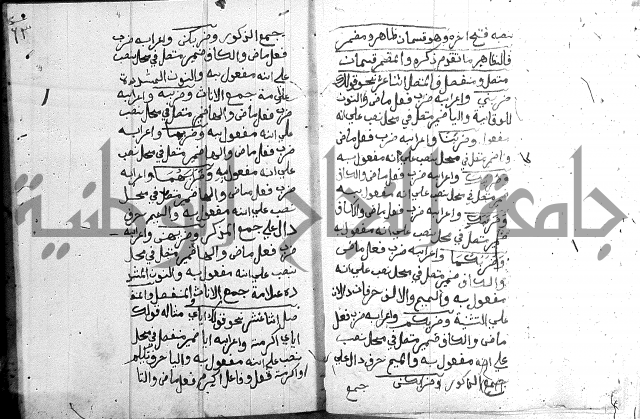 نصبه فتح اخره وهو قسمان ظاهر ومضمر
فالظاهر ما تقدم ذكره والمضمر قسمان
متصل ومنفصل فالمتصل اثنا عشر نحو قولك
ضربني واعرابه ضرب فعل ماض والنون
للوقاية واليا ضمير متصل في محل نصب علي انه
مفعول وضربنا واعرابه ضرب فعل ماض
ونا ضمير متصل في محل نصب علي انه مفعول به
وضربك واعرابه ضرب فعل ماض والكاف
ضمير متصل في محل نصب علي انه مفعول به
وضربك واعرابه ضرب فعل ماض والكاف
ضمير متصل في محل نصب علي انه مفعول به
وضربكما واعرابه ضرب فعل ماض
والكاف ضمير متصل في محل نصب علي انه
مفعول به والميم والالف حرفان دالان
علي التثنية وضربكم واعرابه ضرب فعل
ماض والكاف ضمير متصل في محل نصب
علي انه مفعول به والميم حرف دال علي
جمع الذكور وضربكن
جمع
جمع الذكور وضربكن واعرابه ضرب
فعل ماض والكاف ضمير متصل في محل نصب
علي انه مفعول به والنون المشددة
علامة جمع الاناث وضربه واعرابه
ضرب فعل ماض والها ضمير متصل في محل نصب
علي انه مفعول به وضربها واعرابه
ضرب فعل ماض والها ضمير متصل في محل نصب
علي انه مفعول به وضربهما واعرابه
ضرب فعل ماض والها ضمير متصل في محل
نصب علي انه مفعول به والميم حرف
دال علي جمع المذكر وضربهن واعرابه
ضرب فعل ماض والها ضمير متصل في محل
نصب علي انه مفعول به والنون المشد
ده علامة جمع الاناث والمنفصل والمنف
صل اثنا عشر نحو قولك اياي مثاله قولك
اياي اكرمت واعرابه ايا ضمير منفصل في محل
نصب علي انه مفعول به واليا حرف تكلم
واكرمت فعل وفاعل اكرم فعل ماض والتا
جامعة النجاح الوطنية